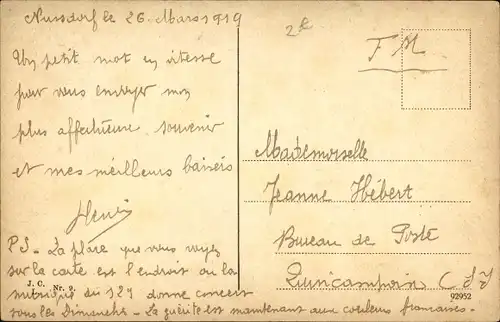 Nussdorf le 26 Mars 1919
Un petit mot en vitesse
pour vous envoyer mon
plus affectueux souvenir
et mes meilleurs baisers
Henri
PS - La place que vous voyez
sur la carte est l'endroit où la
musique du 129 donne concert
tous les Dimanches - La guérite est maintenant aux couleurs françaises -
J. C. Nr. 9.
2e
F M
Mademoiselle
Jeanne Hébert
Bureau de Poste
92952